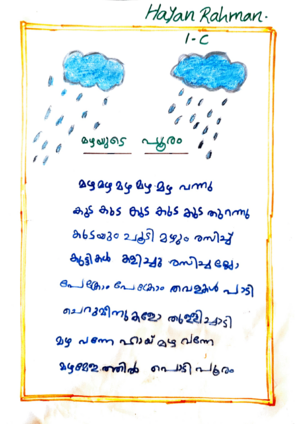 Hayan Rahman.
1-C
മഴയുടെ പൂരം
മഴ മഴ മഴ മഴ മഴ വന്നു
കുട കുട കുട കുട കുട തുറന്നു
കുടയും ചൂടി മഴയും രസിച്ച്
കുട്ടികൾ കളിച്ചു രസിച്ചല്ലോ
പേക്രോം പേക്രോം തവളകൾ പാടി
ചെറുമീനുകളോ തുള്ളിച്ചാടി
മഴ വന്നേ ഹായ് മഴ വന്നേ
പൊടിപൂരം